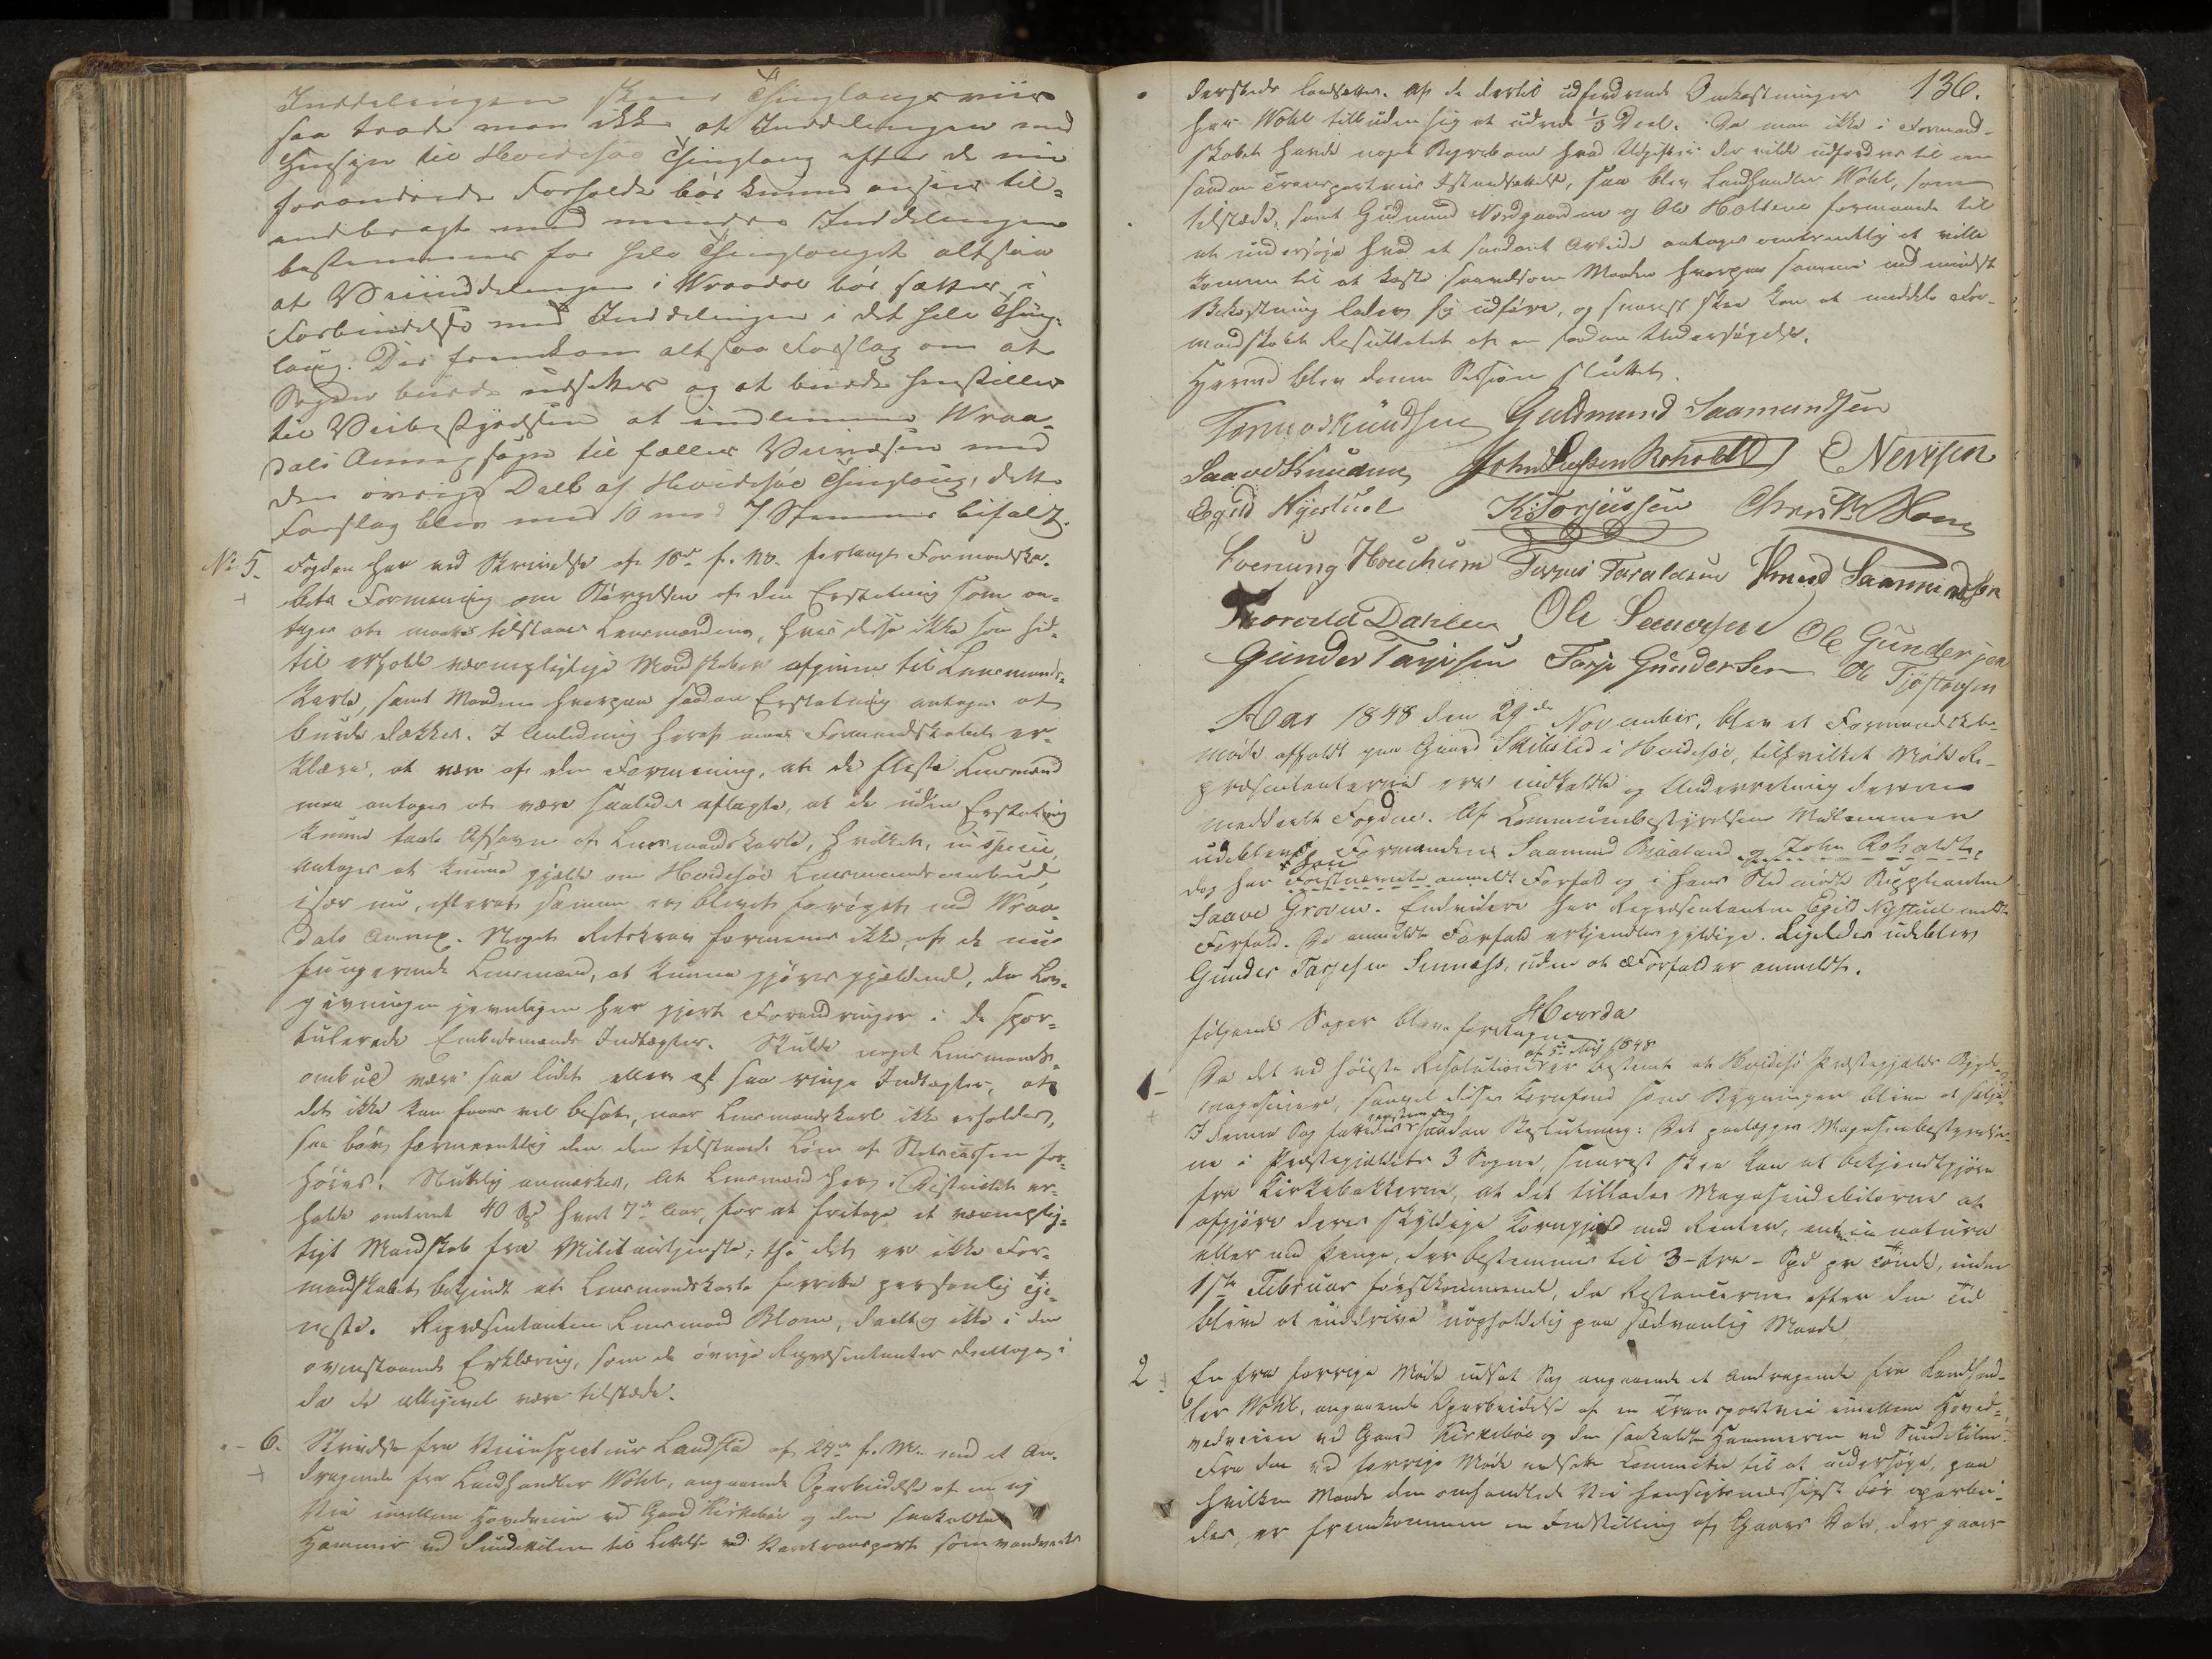 Inddelingen skeer Thinglaugsviis
saa troede man ikke at Inddelingen med
Hensyn til Hvidesøe Thinglaug efter de nu
forandrede Forholde bør kunne ansees til-
endebragt med mindre Inddelingen
bestemmes for hele Thinglauget altsaa
at Veiinddelingen i Wraadal bør sættes i
Forbindelse med Inddelingen i det hele Thing-
laug. Der fremkom altsaa Forslag om at
Sagen burde udsættes og at burde henstilles
til Veibestyrelsen at indlemme Wraa-
dals Annexsogn til fælles Veivæsen med
den øvrige Deel af Hvidesøe Thinglaug, dette
Forslag blev med 10 mod 7 Stemmer bifaldt.
No 5. Fogden har ved Skrivelse af 18de f. M. forlangt Formandska-
bets Formening om Størrelsen af den Erstatning som an-
tages at maatte tilstaaes Lensmændene, hvis disse ikke som hid-
til erholde værnepligtige Mandskaber afgivne til Lensmands-
karle, samt Maaden hvorpaa saadan Erstatning antages at
burde dækkes. I Anledning heraf maa Formandskabet er-
klære, at være af den Formening, at de fleste Lensmænd
maa antages at være saaledes aflagte, at de uden Erstatning
kunne taale Afsavn af Lensmandskarle, hvilket, in specie,
antages at kunne gjælde om Hvidesøe Lensmandsombud,
især nu, efterat samme er blevet forøget med Wraa-
dals Annex. Noget Retskrav formenes ikke, af de nu
fungerende Lensmænd, at kunne gjøres gjældende, da Lov-
givningen jevnligen har gjort Forandringer i de spor-
tulerede Embedsmænds Indtægter. Skulde noget Lensmands-
ombud være saa lidet eller af saa ringe Indtægter, at
det ikke kan faaes vel besat, naar Lensmandskarl ikke erholdes,
saa bør formeentlig den dem tilstaaede Løn af Statscassen for-
høies. Sluttelig anmærkes, at Lensmænd her i Districtet er-
holde omtrent 40 Spd hvert 7de Aar, for at fritage et værneplig-
tigt Mandskab fra Militairtjeneste; thi det er ikke For-
mandskabet bekjendt at Lensmandskarle forrette personlig Tje-
neste. Repræsentanten Lensmand Blom, deeltog ikke i den
ovenstaaende Erklæring, som de øvrige Repræsentanter deeltoge i
da de alligevel vare tilstæde.
6. Skrivelse fra Veiinspecteur Landstad af 24de f. M. med et An-
dragende fra Landhandler Wøhl, angaaende Oparbeidelse af en ny
Vei imellem Hovedveien ved Gaard Kirkebøe og den saakaldte
Hammer ved Sundkilen til Lettelse ved Varetransport som vandveis
136.
dersteds landsættes. Af de dertil udfordrende Omkostninger
har Wøhl tilbuden sig at udrede 1/3 Deel. Da man ikke i Formand-
skabet havde noget Begreb om hvad Udgifter der vilde udfordres til en
saadan Transportveis Istandsættelse, saa blev Landhandler Wøhl, som
tilstæde, samt Gudmund Nordgaarden og Ole Holtene formaaede til
at undersøge hvad et saadant Arbeide antages omtrentlig at ville
komme til at koste saavelsom Maaden hvorpaa samme med mindst
Bekostning lader sig udføre, og snarest skee kan at meddele For-
mandskabet Resultatet af en saadan Undersøgelse.
Hermed blev denne Session sluttet.
Tormod Knudsen Guldmund Saamundsen
Saave Knudsen John Roholdt C Nevisen
Egild Nystuel K: Torjussen Christ Blom
Svenung Houckum Terjus Taraldsen Knud Saamundsen
Thorvild Dahlen Ole Sauversen Ole Gundersen
Gunder Tarjesen Tarje Gundersen Ole Tjøstovsen
Aar 1848 den 29de November, blev et Formandskabs-
møde afholdt paa Gaard Skibslid i Hvidesøe, tilhvilket Møde Re-
præsentanterne ere indkaldte og Underretning derom
meddeelt Fogden. Af Communebestyrelsens Medlemmer
udebleve Formændene Saamund Bjaaland og John Roholdt,
dog har han Førstnævnte anmeldt Forfald og i hans Sted mødte Supleanten
Saave Groven. Endvidere har Repræsentanten Egild Nystuel meldt
Forfald. De anmeldte Forfald erkjendtes gyldige. Ligeledes udeblev
Gunder Tarjesen Sunnæss, uden at Forfald er anmeldt.
Hvorda
følgende Sager bleve foretagne
1- Da det ved høieste Resolution af 5te Aug 1848 er bestemt at Hvidesø Præstegjælds Bygde-
magasiner, saavel disses Kornfond som Bygninger blive at sælge.
I denne Sag fattedes eenstemmig saadan Beslutning: Det paalægges Magasinbestyrelser-
ne i Præstegjældets 3 Sogne, snarest skee kan at bekjendtgjøre
fra Kirkebakkerne, at det tillades Magasindebitorerne at
afgjøre deres skyldige Korngjæld med Renter, enten in natura
eller med Penge, der bestemmes til 3 - tre - Spd pr Tønde, inden
1ste Februar førstkommende, da Restancerne efter den Tid
blive at inddrive uopholdelig paa sædvanlig Maade.
2 En fra forrige Møde udsat Sag angaaende et Andragende fra Landhand-
ler Wøhl, angaaende Oparbeidelse af en Transportvei imellem Hoved-
veien ved Gaard Kirkebøe og den saakaldte Hammeren ved Sundkilen.
Fra den ved forrige Møde nedsatte Committee til at undersøge, paa
hvilken Maade den omhandlede Vei hensigtsmæssigst bør oparbei-
des, er fremkommen en Indstilling af Gaars Dato, der gaaer